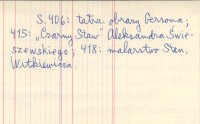 S. 406: tatra. obrazy Gersona;
415: „Czarny Staw" Aleksandra Świe-
szewskiego; 418: malarstwo Stan.
Witkiewicza.